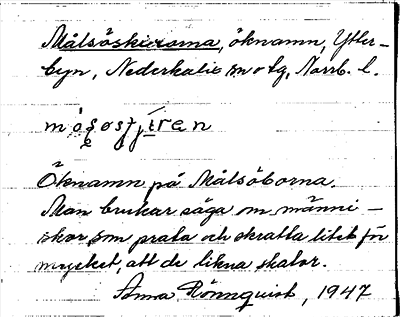 Målsöskiorna, öknamn, Ytter-
byn, Nederkalix sn o tg, Norrb. l.
Öknamn på Målsöborna.
Man brukar säga om männi-
skor, som prata och skratta litet för
mycket, att de likna skator.
Anna Rönnquist, 1947